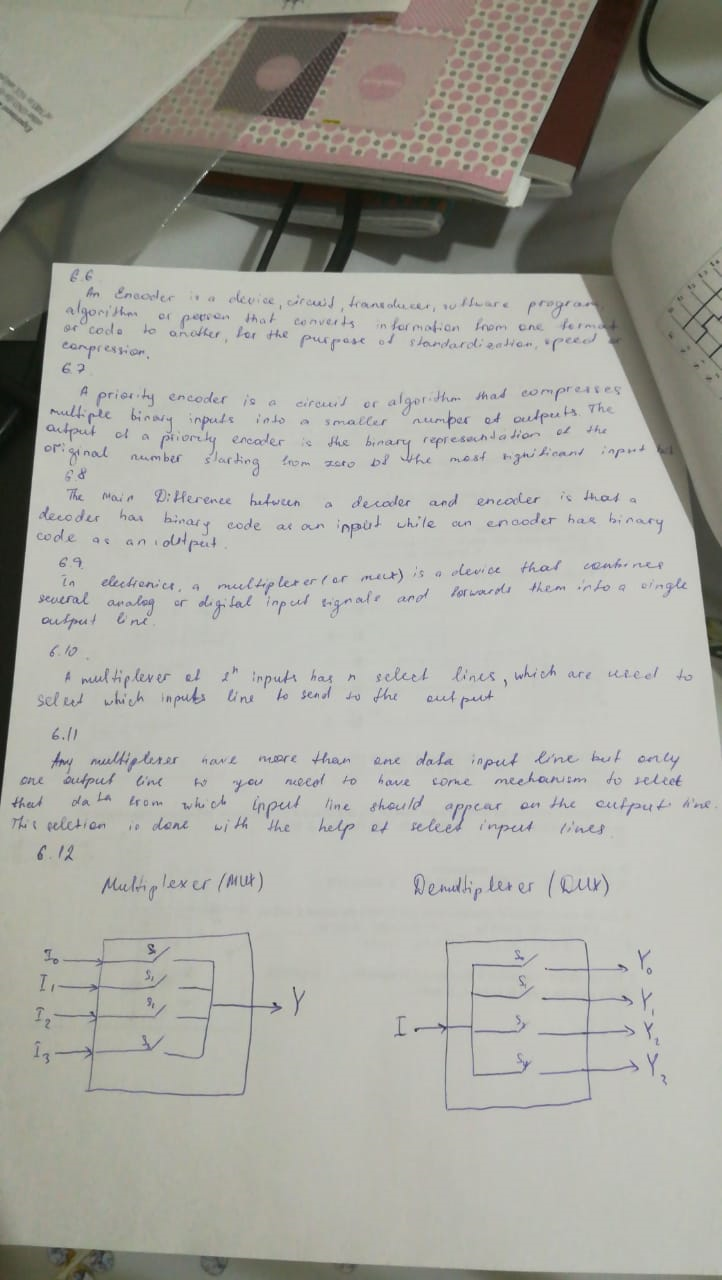 6.6
An Encoder is a device, circuit, transducer, software program,
algorithm or person that converts information from one format
or code to another, for the purpose of standardization, speed or
compression.
6.7
A priority encoder is a circuit or algorithm that compresses
multiple binary inputs into a smaller number of outputs. The
output of a priority encoder is the binary representation of the
original number starting from zero of the most significant input bit
6.8
The Main Difference between a decoder and encoder is that a
decoder has binary code as an input while an encoder has binary
code as an output.
6.9
In electronics, a multiplexer (or mux) is a device that combines
several analog or digital input signals and forwards them into a single
output line.
6.10.
A multiplexer of 2ⁿ inputs has n select lines, which are used to
select which inputs line to send to the output
6.11
Any multiplexer have more than one data input line but only
one output line so you need to have some mechanism to select
that data from which input line should appear on the output line.
This seletion is done with the help of select input lines.
6.12
Multiplexer (MUX) Demultiplexer (DUX)
I₀ S₀ S₀ Y₀
I₁ S₁ Y S₁ Y₁
I₂ S₁ I Y₂
I₃ Y₃